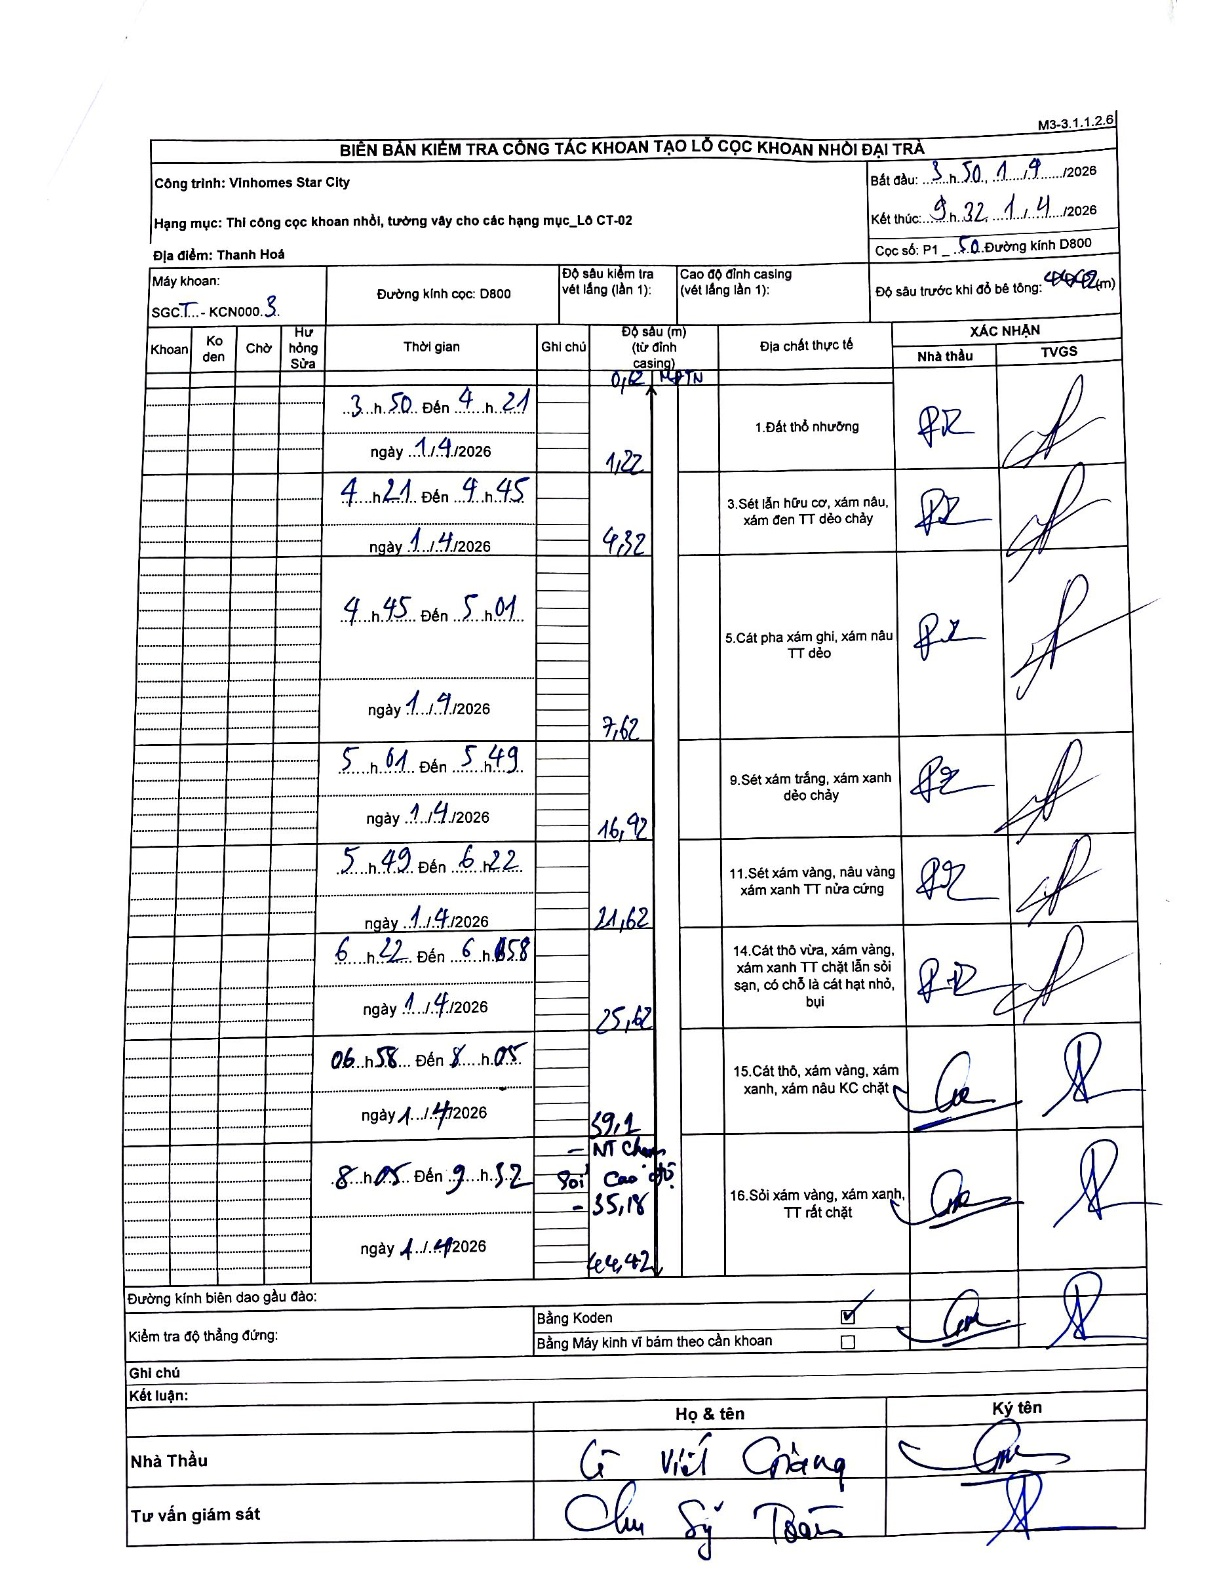 M3-3.1.1.2.6
BIÊN BẢN KIỂM TRA CÔNG TÁC KHOAN TẠO LỖ CỌC KHOAN NHỒI ĐẠI TRÀ
Công trình: Vinhomes Star City
Bắt đầu: 3 h 50, 1/4/2026
Hạng mục: Thi công cọc khoan nhồi, tường vây cho các hạng mục_Lô CT-02
Kết thúc: 9 h 32, 1/4/2026
Địa điểm: Thanh Hoá
Cọc số: P1 _ 50 Đường kính D800
Máy khoan:
SGC T - KCN000 3
Đường kính cọc: D800
Độ sâu kiểm tra
vét lắng (lần 1):
Cao độ đỉnh casing
(vét lắng lần 1):
Độ sâu trước khi đổ bê tông: (m)
Khoan
Ko
den
Chờ
Hư
hỏng
Sửa
Thời gian
Ghi chú
Độ sâu (m)
(từ đỉnh
casing)
Địa chất thực tế
XÁC NHẬN
Nhà thầu
TVGS
0,62 MĐTN
3 h 50 Đến 4 h 21
ngày 1/4/2026
1,22
1.Đất thổ nhưỡng
4 h 21 Đến 4 h 45
ngày 1/4/2026
4,32
3.Sét lẫn hữu cơ, xám nâu,
xám đen TT dẻo chảy
4 h 45 Đến 5 h 01
ngày 1/4/2026
7,62
5.Cát pha xám ghi, xám nâu
TT dẻo
5 h 01 Đến 5 h 49
ngày 1/4/2026
16,92
9.Sét xám trắng, xám xanh
dẻo chảy
5 h 49 Đến 6 h 22
ngày 1/4/2026
21,62
11.Sét xám vàng, nâu vàng
xám xanh TT nửa cứng
6 h 22 Đến 6 h 58
ngày 1/4/2026
25,62
14.Cát thô vừa, xám vàng,
xám xanh TT chặt lẫn sỏi
sạn, có chỗ là cát hạt nhỏ,
bụi
06 h 58 Đến 8 h 05
ngày 1/4/2026
39,1
15.Cát thô, xám vàng, xám
xanh, xám nâu KC chặt
8 h 05 Đến 9 h 32
ngày 1/4/2026
- NT Chạm
Sỏi Cao độ
- 35,18
44,42
16.Sỏi xám vàng, xám xanh,
TT rất chặt
Đường kính biên dao gầu đào:
Kiểm tra độ thẳng đứng:
Bằng Koden ☑
Bằng Máy kinh vĩ bám theo cần khoan ☐
Ghi chú
Kết luận:
Họ & tên
Ký tên
Nhà Thầu
Viết
Tư vấn giám sát
Chu Sỹ Toàn